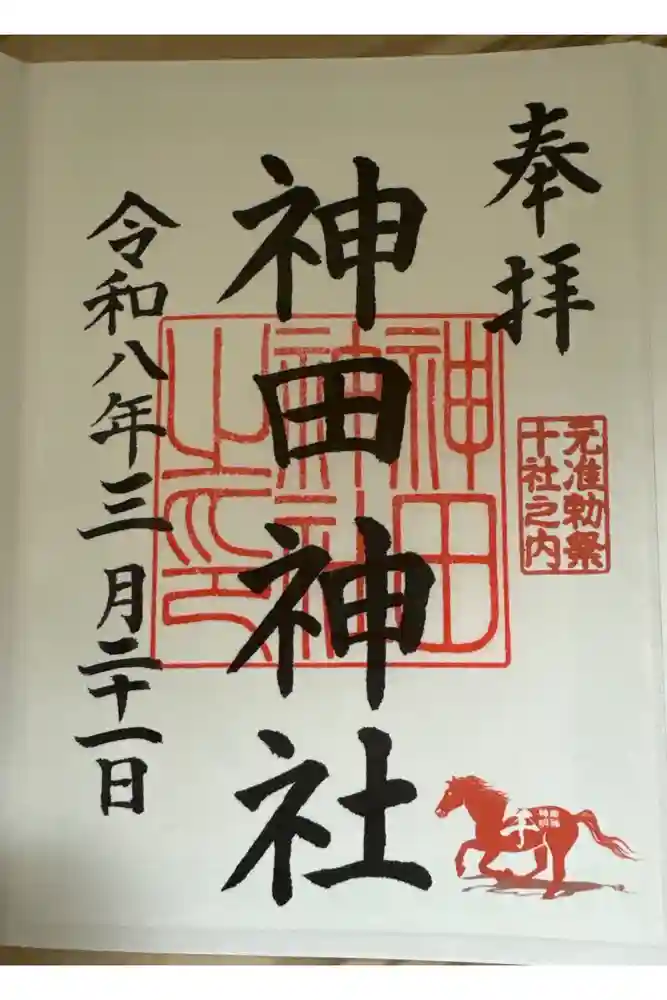 奉拝
元准勅祭
十社之内
神田神社
神田
神社
之印
令和八年三月二十一日
午